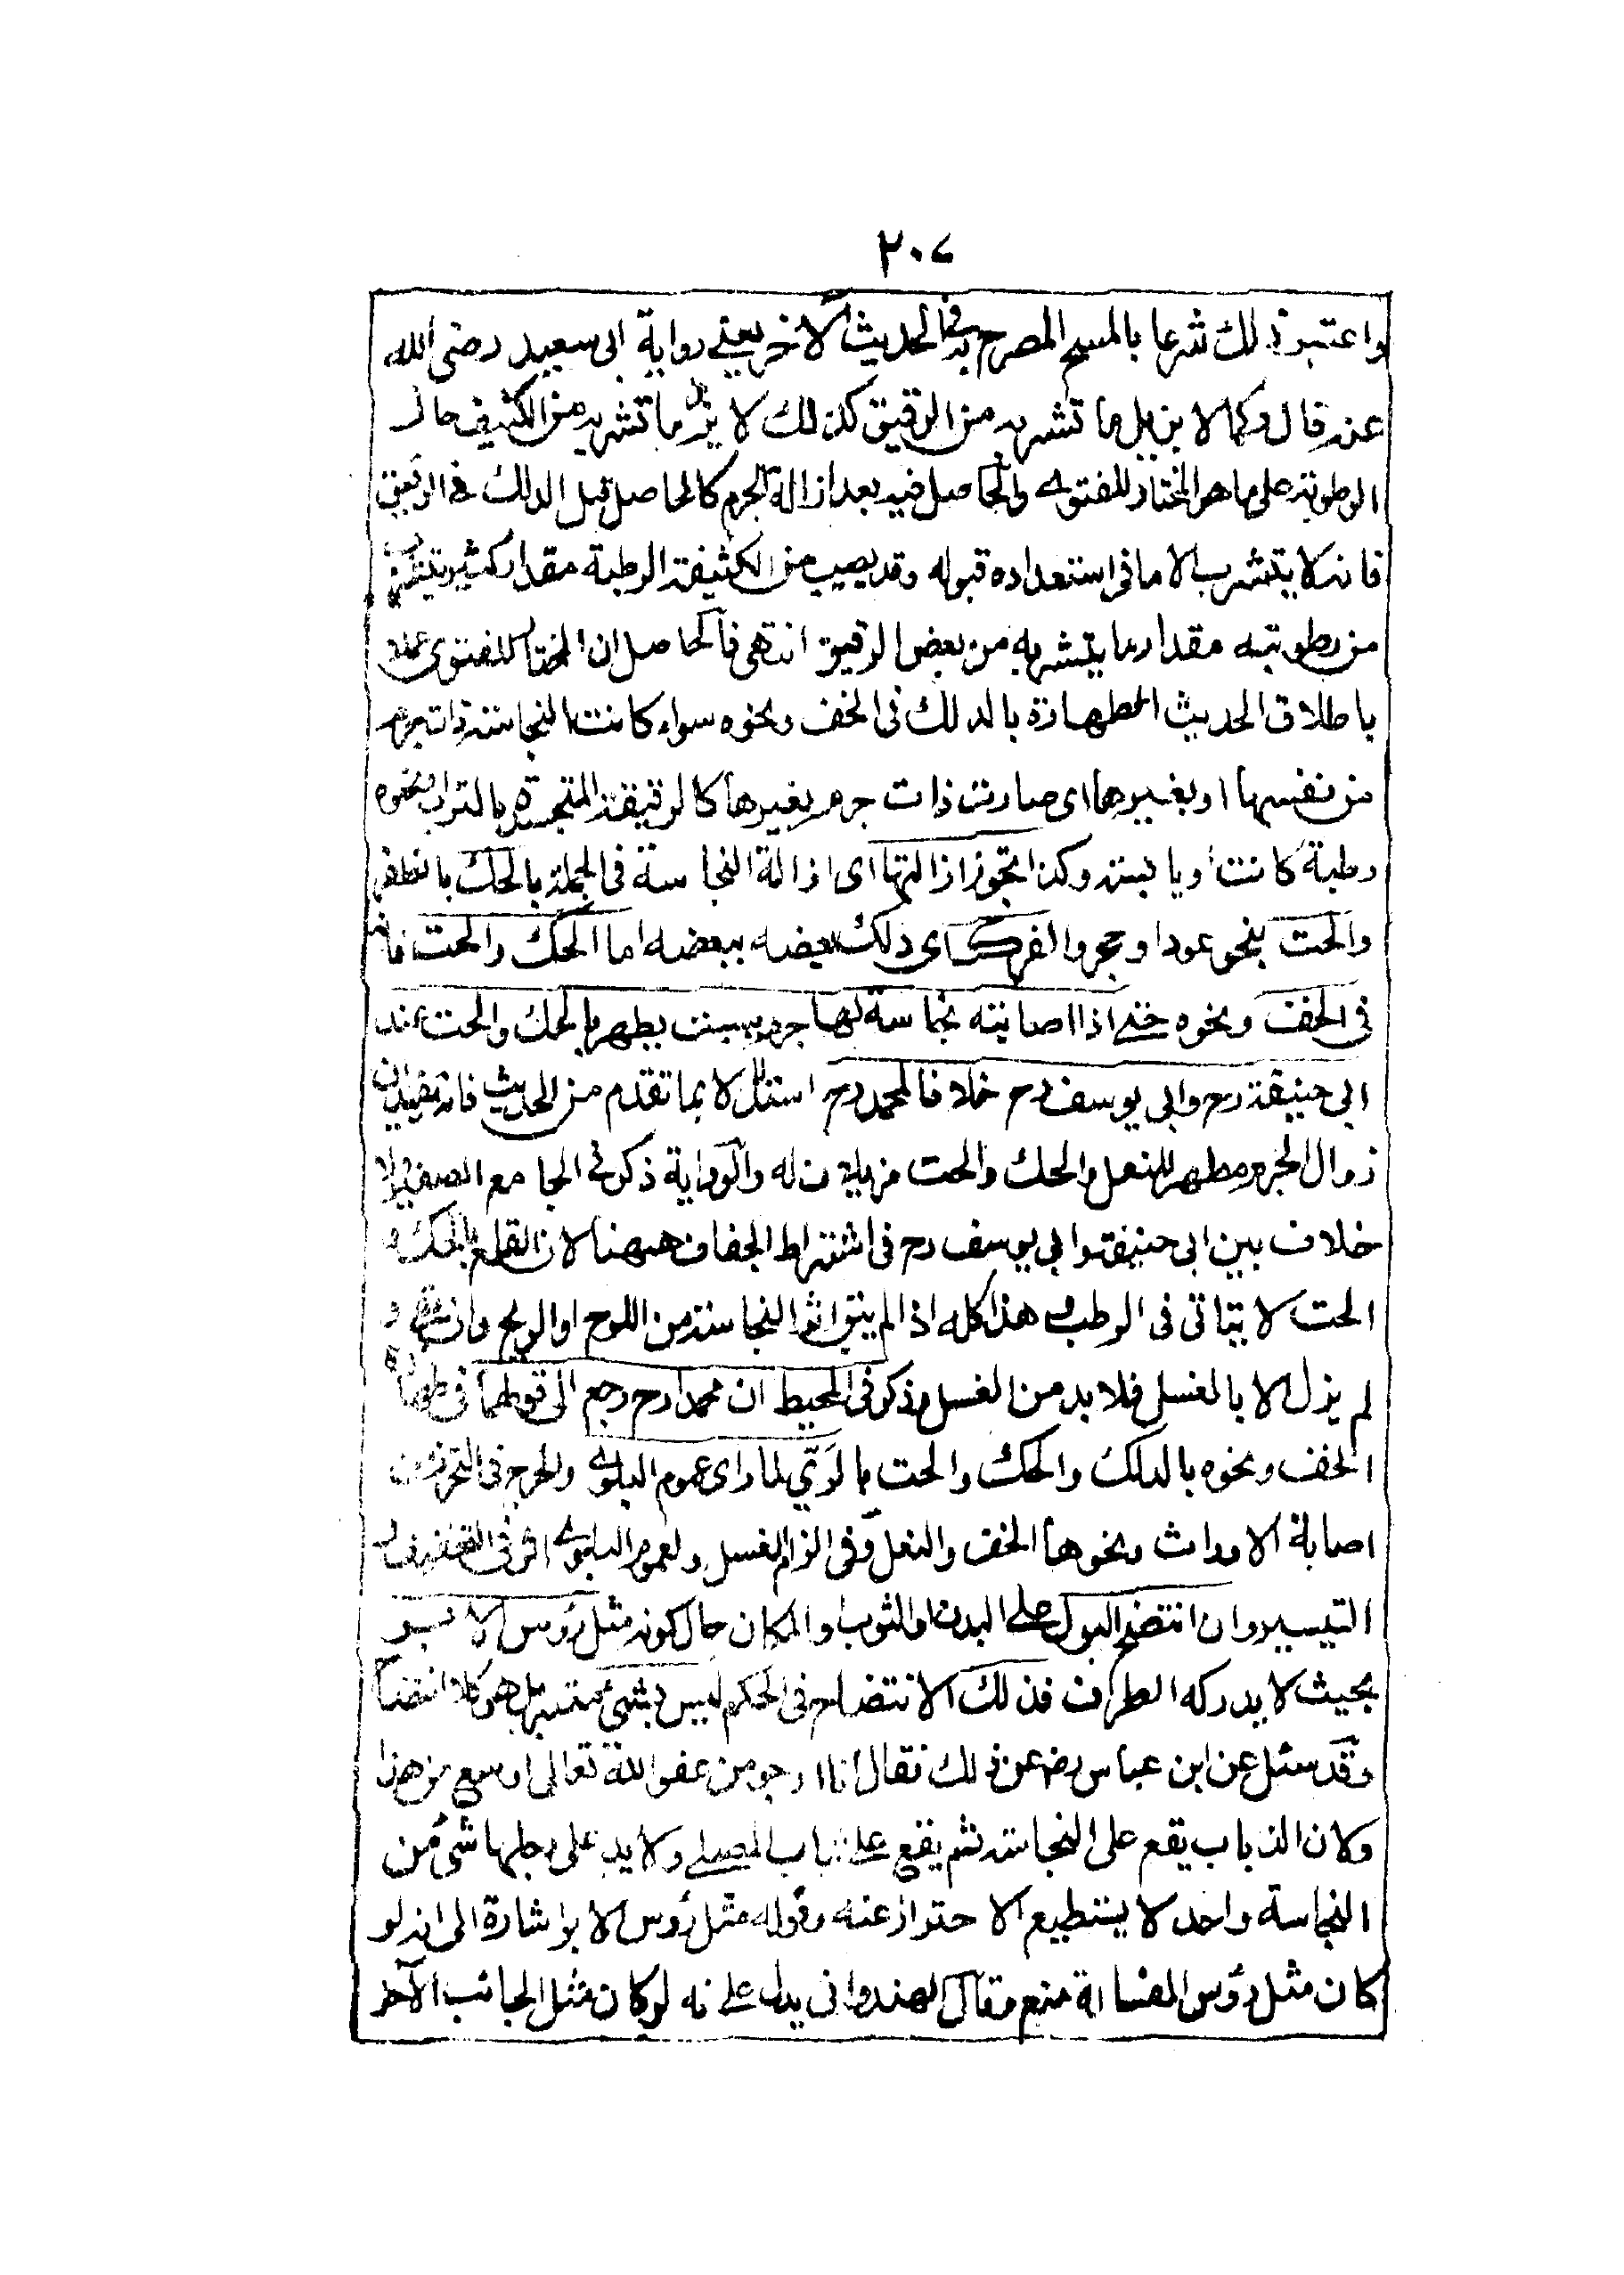 ٢٠٧
واعتبر ذلك شرعا بالمسح المصرح به فى الحديث الاخر يعنى رواية ابى سعيد رضى الله
عنه قال وكما لا يزيل ما تشربه من الرقيق كذلك لا يزيل ما تشربه من الكثيف حال
الرطوبة على ما هو المختار للفتوى والحاصل فيه بعد ازالة الجرم كالحاصل قبل الدلك فى الرقيق
فانه لا يتشرب الا ما فى استعداده قبوله وقد يصيب من الكثيفة الرطبة مقدار كثير يتشرب
من رطوبته مقدار ما يتشربه من بعض الرقيق انتهى فالحاصل ان المختار للفتوى عملا
باطلاق الحديث الطهارة بالدلك فى الخف ونحوه سواء كانت النجاسة ذات جرم
من نفسها او بغيرها اى صارت ذات جرم بغيرها كالرقيقة المتجسدة بالتراب ونحوه
رطبة كانت او يابسة وكذا تجوز ازالتها اى ازالة النجاسة فى الجملة بالحك بالظفر
والحت بنحو عود او حجر والفرك اى دلك بعضه ببعضه اما الحك والحت فانه
فى الخف ونحوه حتى اذا اصابته نجاسة لها جرم يبست يطهر بالحك والحت عند
ابى حنيفة رح وابى يوسف رح خلافا لمحمد رح استدلالا بما تقدم من الحديث فانه يفيد ان
زوال الجرم مطهر للنعل والحك والحت مزيلان له والرواية ذكر فى الجامع الصغير ولا
خلاف بين ابى حنيفة وابى يوسف رح فى اشتراط الجفاف ههنا لان القلع بالحك و
الحت لا يتاتى فى الرطب هذا كله اذا لم يبق اثر النجاسة من اللون او الريح وان بقى و
لم يزل الا بالغسل فلا بد من الغسل وذكر فى المحيط ان محمدا رح رجع الى قولهما فى طهارة
الخف ونحوه بالدلك والحك والحت بالرى لما راى عموم البلوى والحرج فى التحرز عن
اصابة الاوراث ونحوها الخف والنعل وفى الزام الغسل ولعموم البلوى اثر فى التخفيف و
التيسير وان انتضح البول على البدن او الثوب او المكان حال كونه مثل رؤس الابر
بحيث لا يدركه الطرف فذلك الانتضاح فى الحكم ليس بشئ معتبر بل هو كلا انتضاح
وقد سئل عن ابن عباس رضه عن ذلك فقال انا ارجو من عفو الله تعالى اوسع من هذا
وكان الذباب يقع على النجاسة ثم يقع على ثياب المصلى ولا بد على رجلها شئ من
النجاسة واحد لا يستطيع الاحتراز عنه وقوله مثل رؤس الابر اشارة الى انه لو
كان مثل رؤس المسلة منع وقال الهندوانى يدل على انه لو كان مثل الجانب الآخر